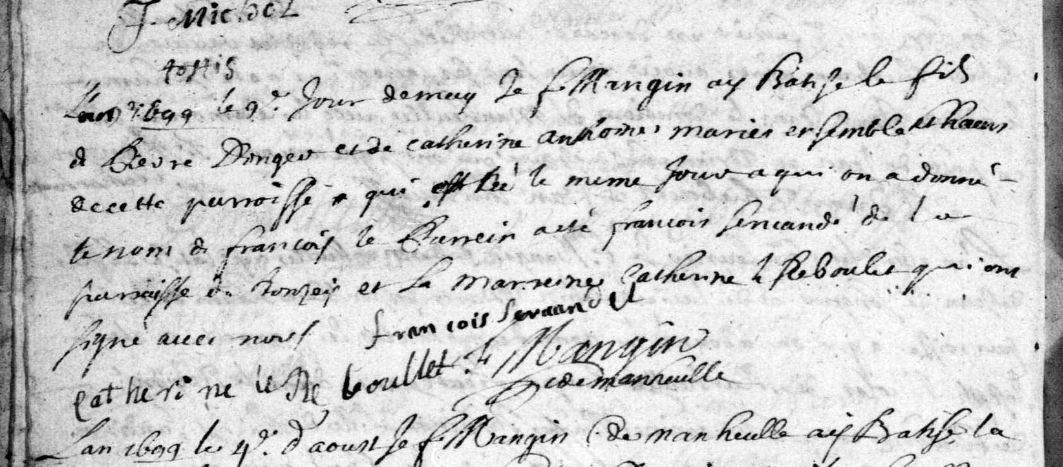 J. Michel
Lan 1699 le 9e. Jour de may Je f. Mangin ay Batisé le fils
d Pierre et de catherine anthoine mariés ensemble
de cette parroisse qui est né le meme Jour a qui on a donné
le nom d françois le Parrein a eté françois Servandé de la
parroisse de et La Marreine Catherine le Reboulet qui ont
signé avec nous françois
catherine le Re boullet f. Mangin
c. de manheulle
Lan 1699 le 4e. d'aoust Je f. Mangin C. de manheulle ay Batisé la